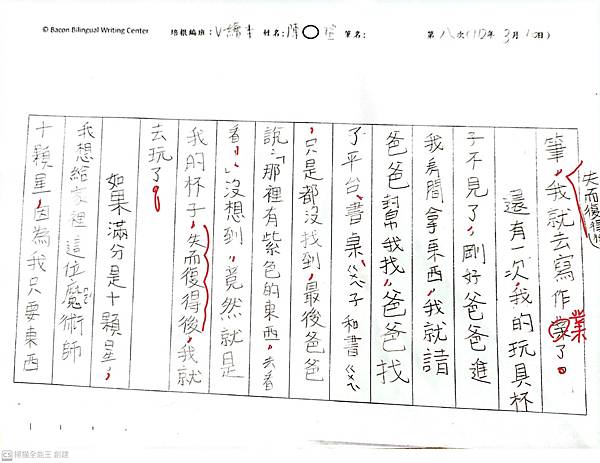 © Bacon Bilingual Writing Center 培根編班：V繪本 姓名：陳○ 筆名： 第八次(112年3月10日)
失而復得
筆，我就去寫作業了。
業
還有一次，我的玩具杯
子不見了，剛好爸爸進
我房間拿東西，我就請
爸爸幫我找，爸爸找
了平台、書桌、ㄍㄨㄟˋ子和書ㄍㄨㄟˋ
，只是都沒找到，最後爸爸
說：「那裡有紫色的東西，去看
看！」沒想到，竟然就是
我的杯子，失而復得後，我就
去玩了。
如果滿分是十顆星，
我想給家裡這位魔術師
十顆星，因為我只要東西
CS 掃描全能王 創建